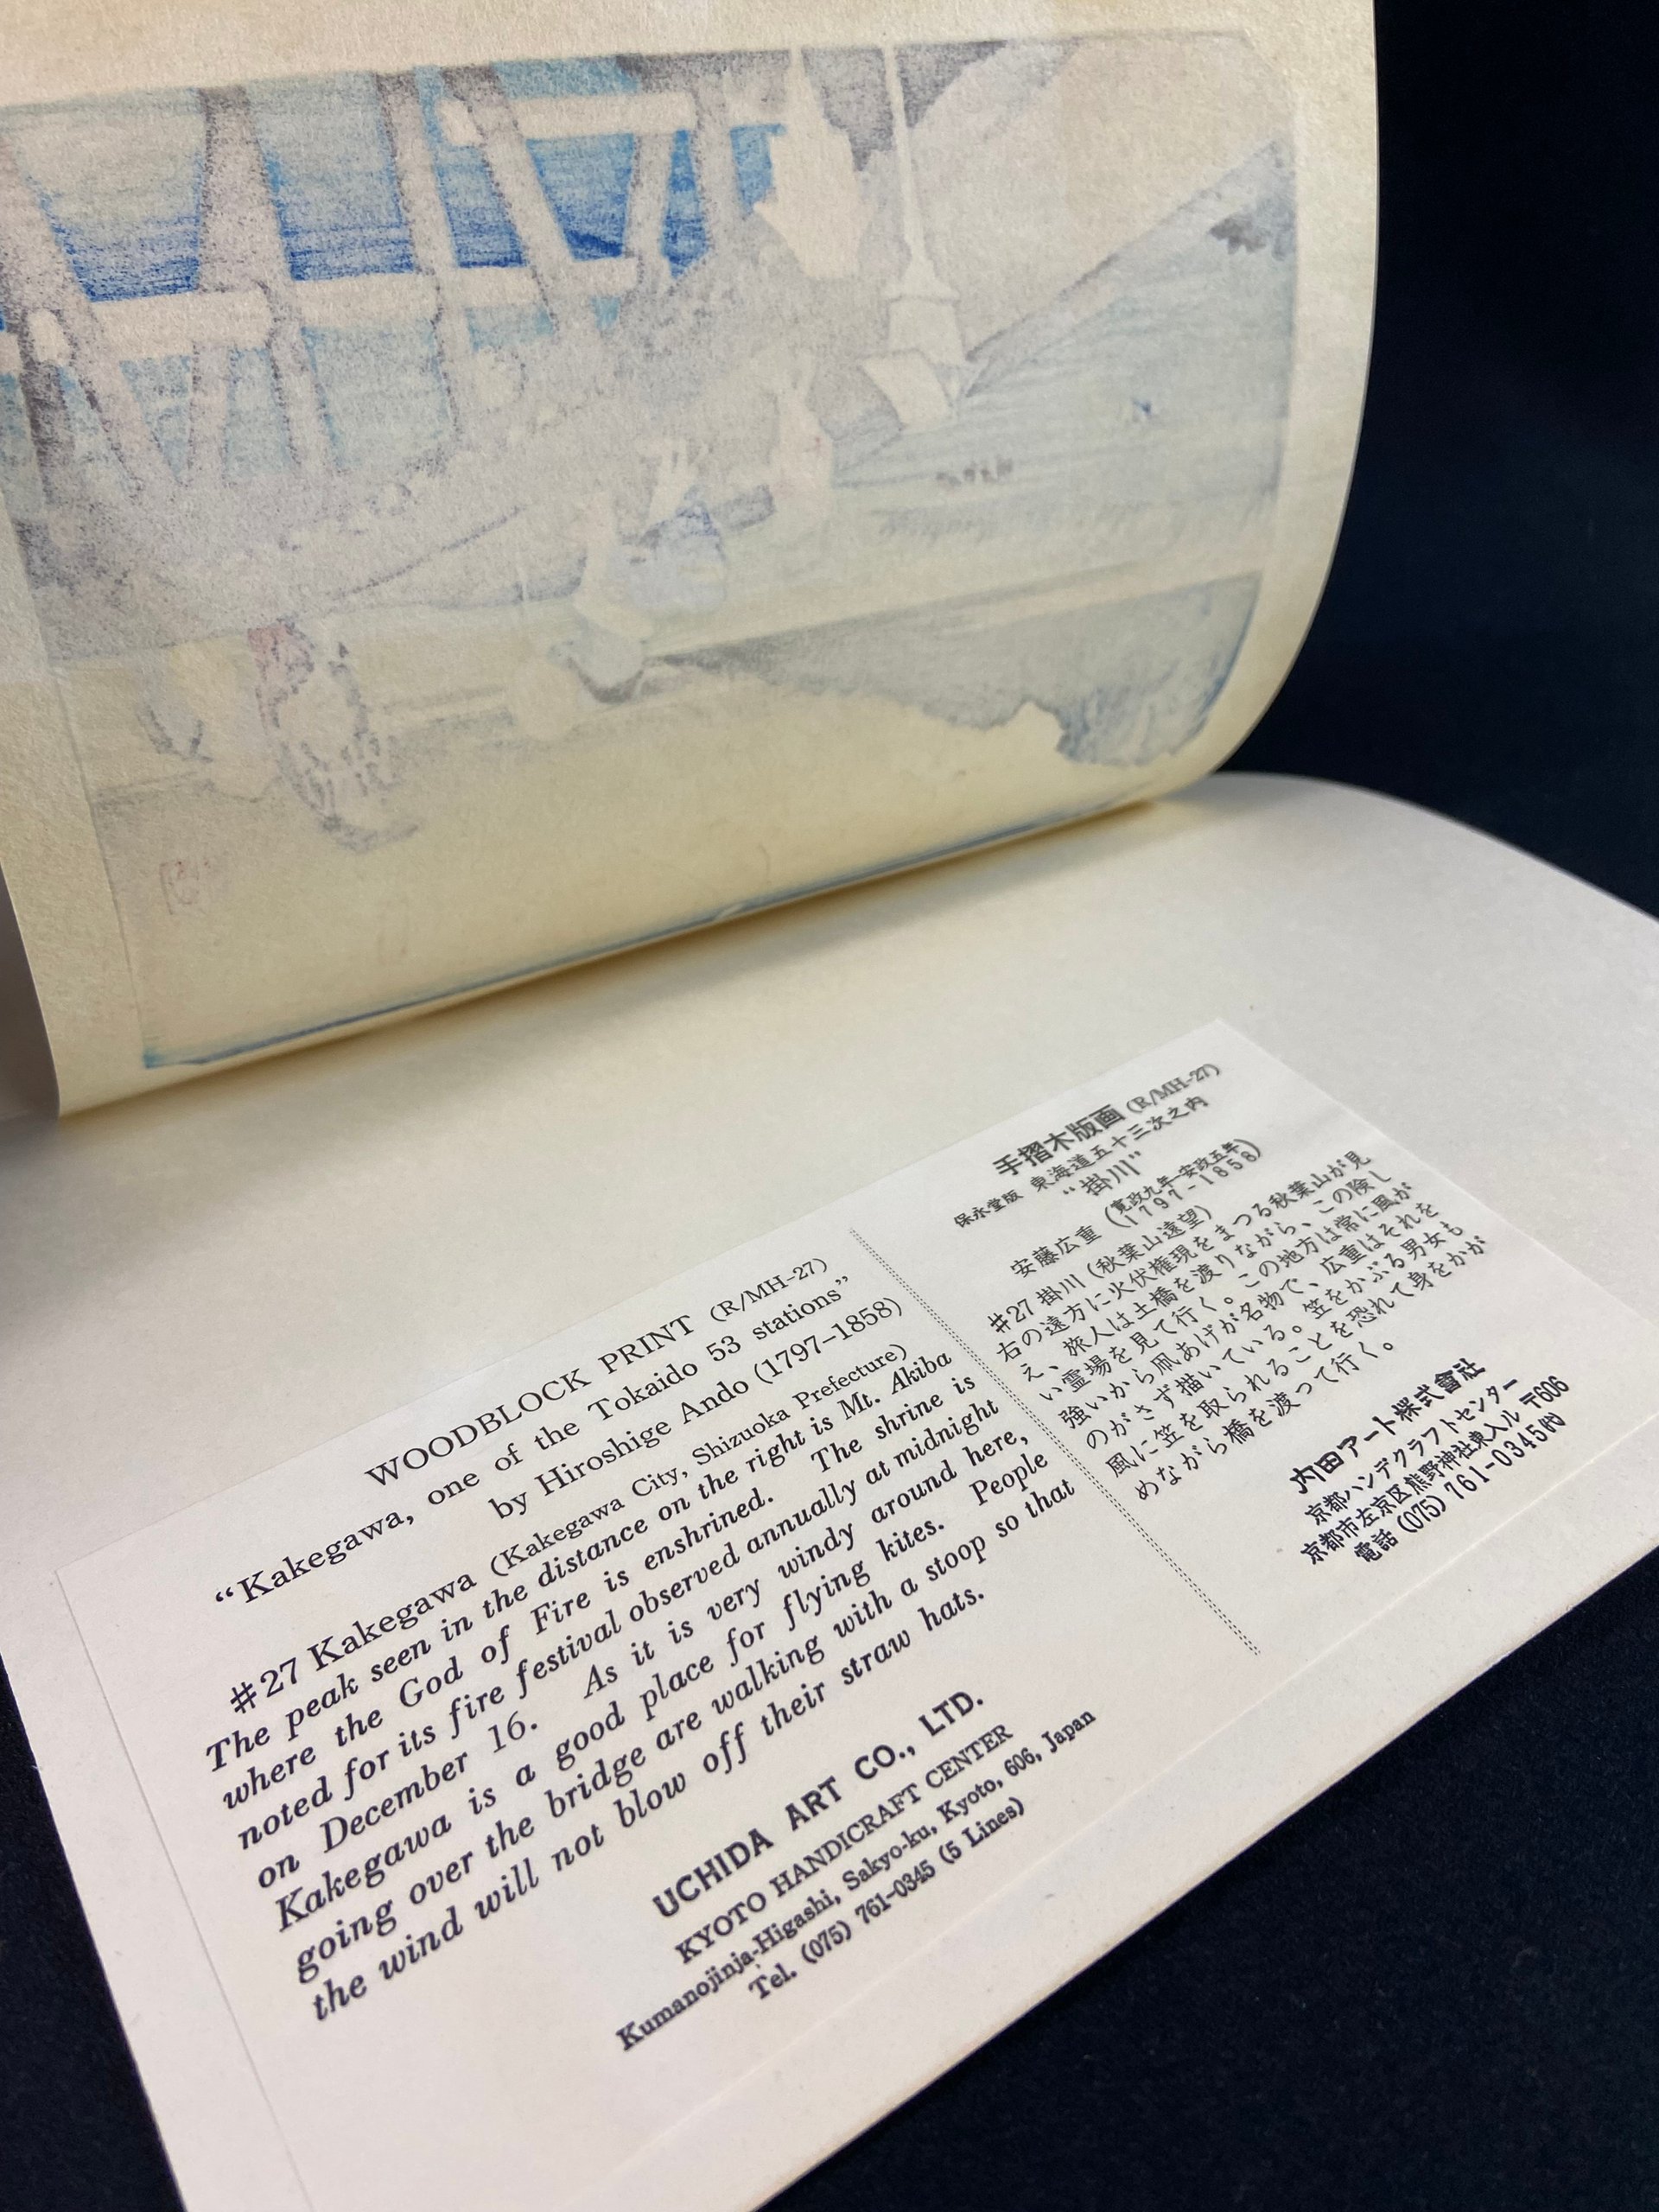 WOODBLOCK PRINT (R/MH-27)
“Kakegawa, one of the Tokaido 53 stations”
by Hiroshige Ando (1797–1858)
#27 Kakegawa (Kakegawa City, Shizuoka Prefecture)
The peak seen in the distance on the right is Mt. Akiba
where the God of Fire is enshrined. The shrine is
noted for its fire festival observed annually at midnight
on December 16. As it is very windy around here,
Kakegawa is a good place for flying kites. People
going over the bridge are walking with a stoop so that
the wind will not blow off their straw hats.
UCHIDA ART CO., LTD.
KYOTO HANDICRAFT CENTER
Kumanojinja-Higashi, Sakyo-ku, Kyoto, 606, Japan
Tel. (075) 761-0345 (5 Lines)
手摺木版画 (R/MH-27)
保永堂版 東海道五十三次之内
“掛川”
安藤広重 (寛政九年-安政五年
1797-1858)
#27 掛川 (秋葉山遠望)
右の遠方に火伏権現をまつる秋葉山が見
え、旅人は土橋を渡りながら、この険し
い霊場を見て行く。この地方は常に風が
強いから凧あげが名物で、広重はそれを
のがさず描いている。笠をかぶる男女も
風に笠を取られることを恐れて身をかが
めながら橋を渡って行く。
内田アート株式會社
京都ハンデクラフトセンター
京都市左京区熊野神社東入ル 〒606
電話 (075) 761-0345㈹